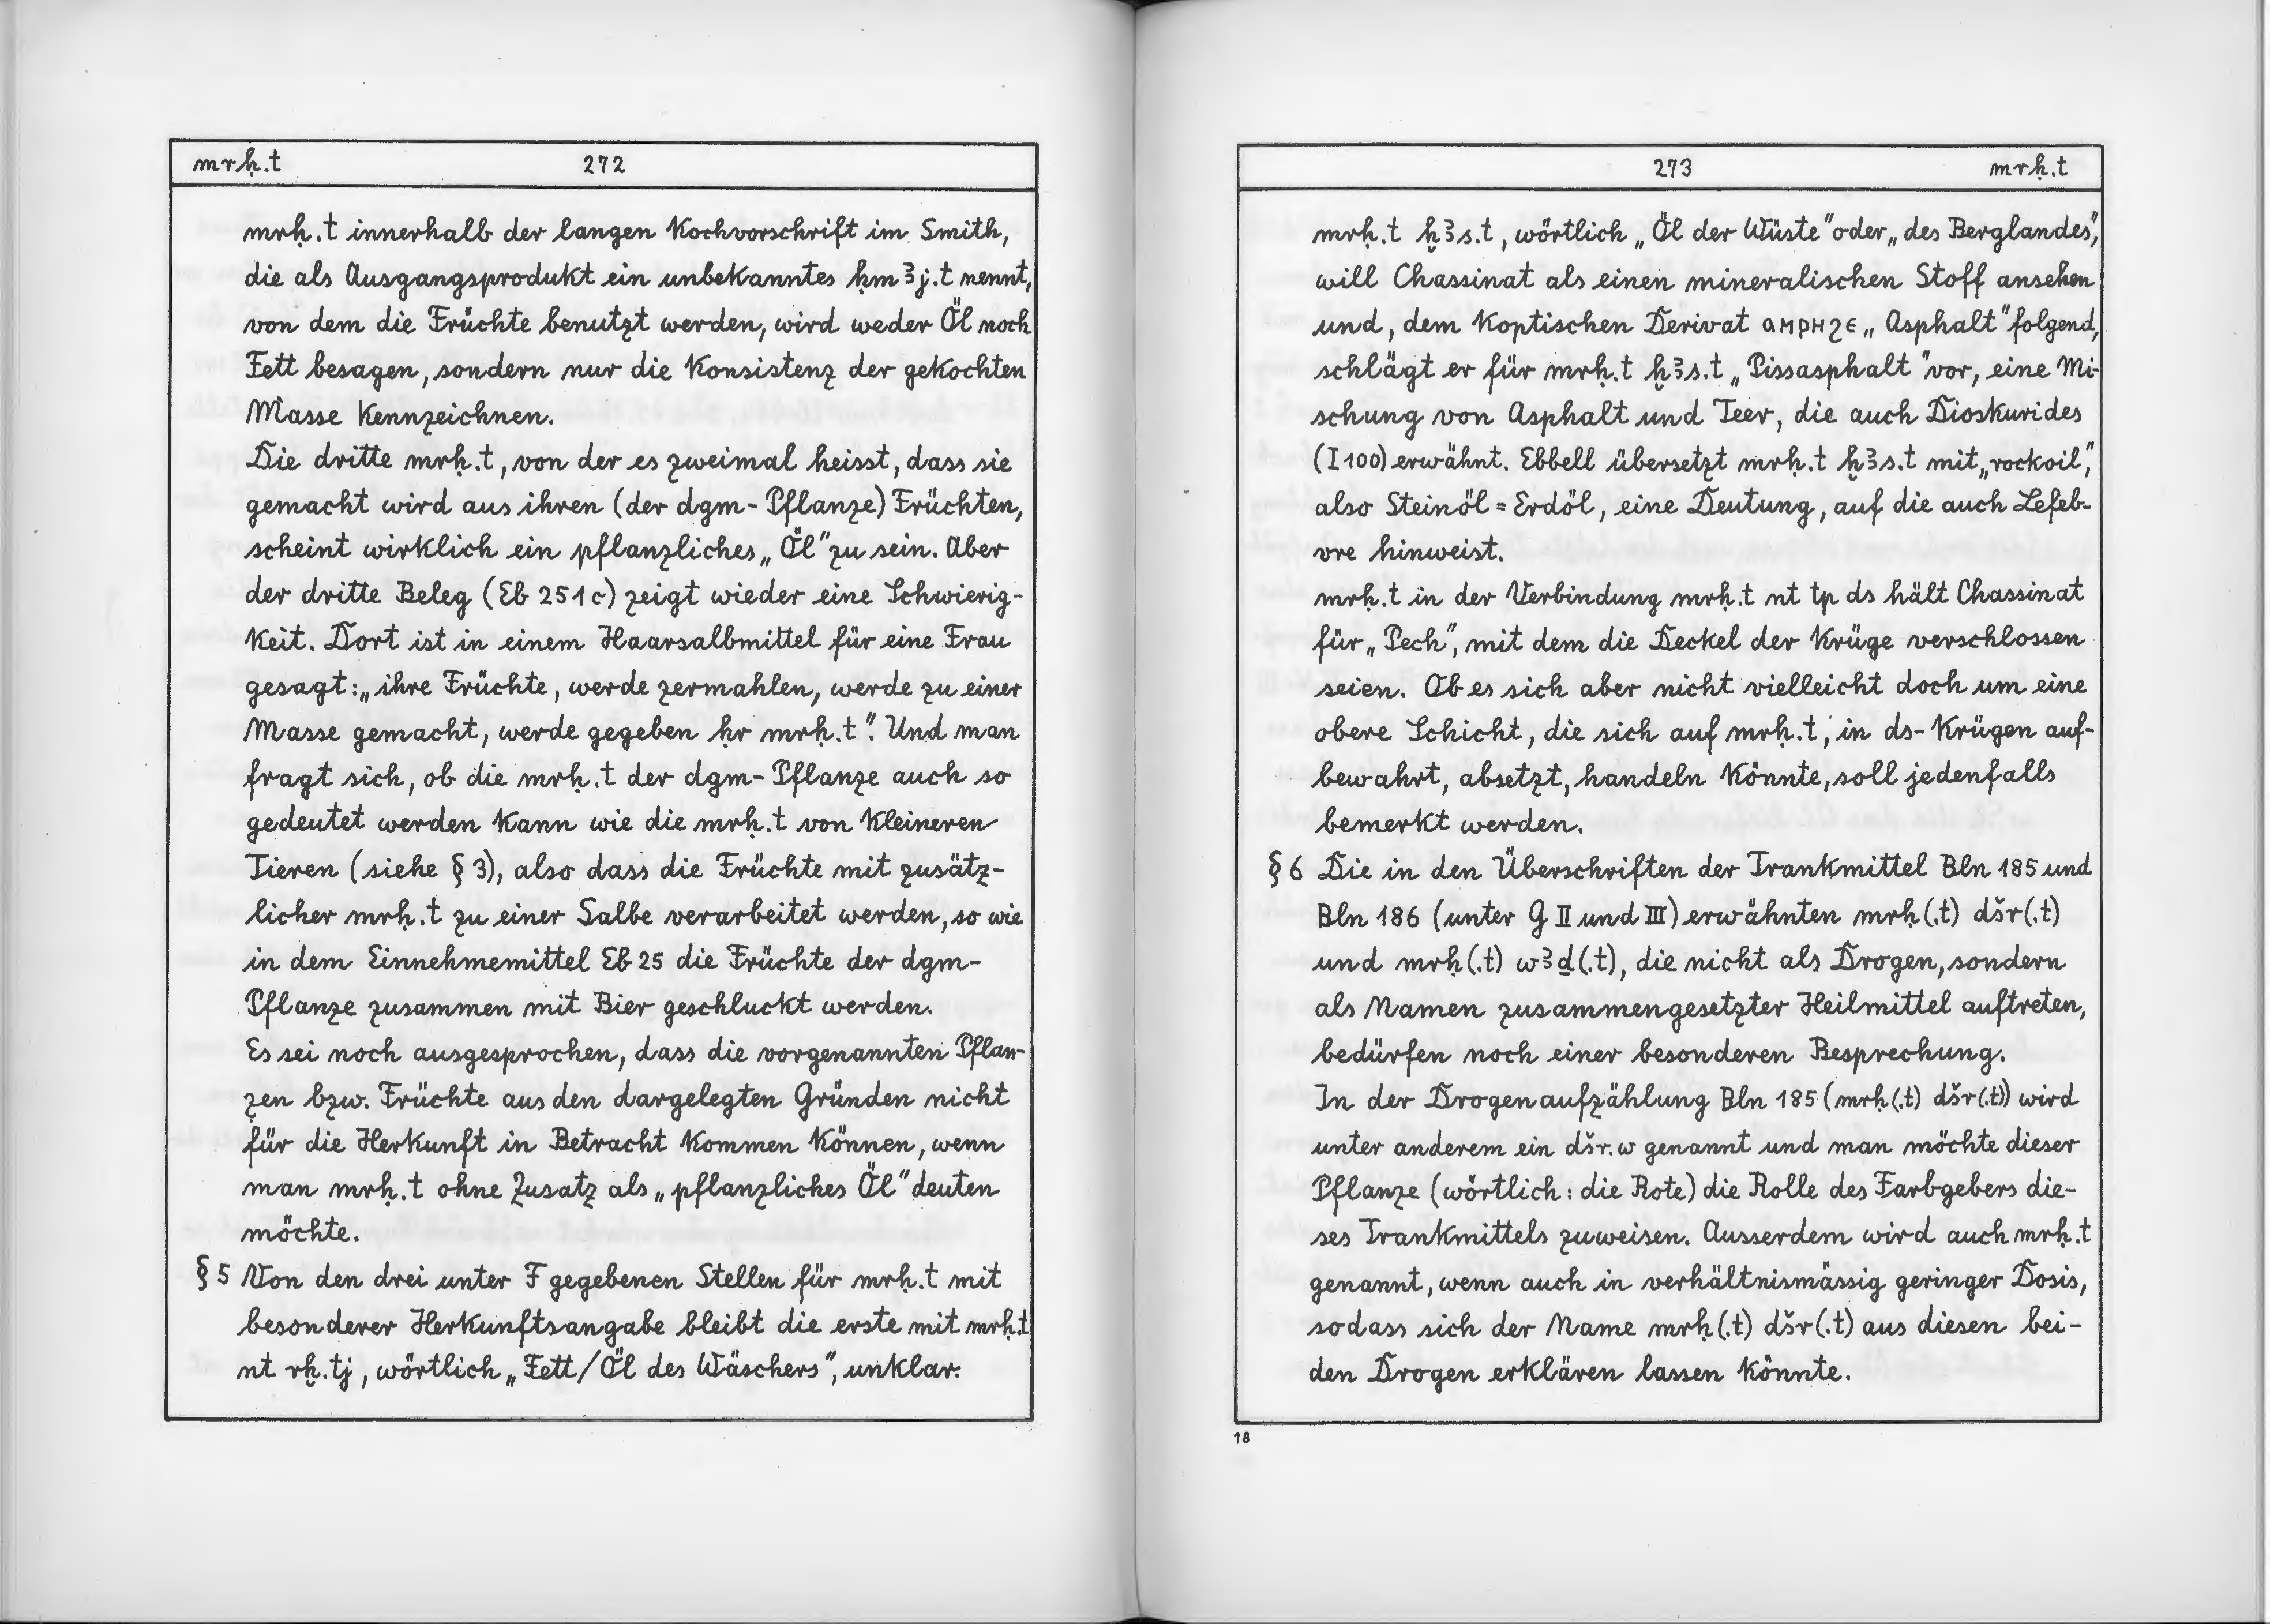 mrḥ.t 272
mrḥ.t innerhalb der langen Kochvorschrift im Smith,
die als Ausgangsprodukt ein unbekanntes ḥmꜣj.t nennt,
von dem die Früchte benutzt werden, wird weder Öl noch
Fett besagen, sondern nur die Konsistenz der gekochten
Masse kennzeichnen.
Die dritte mrḥ.t, von der es zweimal heisst, dass sie
gemacht wird aus ihren (der dgm-Pflanze) Früchten,
scheint wirklich ein pflanzliches „Öl" zu sein. Aber
der dritte Beleg (Eb 251c) zeigt wieder eine Schwierig-
keit. Dort ist in einem Haarsalbmittel für eine Frau
gesagt: „ihre Früchte, werde zermahlen, werde zu einer
Masse gemacht, werde gegeben ḥr mrḥ.t". Und man
fragt sich, ob die mrḥ.t der dgm-Pflanze auch so
gedeutet werden kann wie die mrḥ.t von kleineren
Tieren (siehe § 3), also dass die Früchte mit zusätz-
licher mrḥ.t zu einer Salbe verarbeitet werden, so wie
in dem Einnehmemittel Eb 25 die Früchte der dgm-
Pflanze zusammen mit Bier geschluckt werden.
Es sei noch ausgesprochen, dass die vorgenannten Pflan-
zen bzw. Früchte aus den dargelegten Gründen nicht
für die Herkunft in Betracht kommen können, wenn
man mrḥ.t ohne Zusatz als „pflanzliches Öl" deuten
möchte.
§ 5 Von den drei unter F gegebenen Stellen für mrḥ.t mit
besonderer Herkunftsangabe bleibt die erste mit mrḥ.t
nt rḫ.tj, wörtlich „Fett/Öl des Wäschers", unklar.
273 mrḥ.t
mrḥ.t ḫꜣs.t, wörtlich „Öl der Wüste" oder „des Berglandes",
will Chassinat als einen mineralischen Stoff ansehen
und, dem koptischen Derivat ⲁⲙⲣⲏϩⲉ „Asphalt" folgend,
schlägt er für mrḥ.t ḫꜣs.t „Pissasphalt" vor, eine Mi-
schung von Asphalt und Teer, die auch Dioskurides
(I 100) erwähnt. Ebbell übersetzt mrḥ.t ḫꜣs.t mit „rockoil",
also Steinöl = Erdöl, eine Deutung, auf die auch Lefeb-
vre hinweist.
mrḥ.t in der Verbindung mrḥ.t nt tp ds hält Chassinat
für „Pech", mit dem die Deckel der Krüge verschlossen
seien. Ob es sich aber nicht vielleicht doch um eine
obere Schicht, die sich auf mrḥ.t, in ds-Krügen auf-
bewahrt, absetzt, handeln könnte, soll jedenfalls
bemerkt werden.
§ 6 Die in den Überschriften der Trankmittel Bln 185 und
Bln 186 (unter G II und III) erwähnten mrḥ(.t) dšr(.t)
und mrḥ(.t) wꜣḏ(.t), die nicht als Drogen, sondern
als Namen zusammengesetzter Heilmittel auftreten,
bedürfen noch einer besonderen Besprechung.
In der Drogenaufzählung Bln 185 (mrḥ(.t) dšr(.t)) wird
unter anderem ein dšr.w genannt und man möchte dieser
Pflanze (wörtlich: die Rote) die Rolle des Farbgebers die-
ses Trankmittels zuweisen. Ausserdem wird auch mrḥ.t
genannt, wenn auch in verhältnismässig geringer Dosis,
sodass sich der Name mrḥ(.t) dšr(.t) aus diesen bei-
den Drogen erklären lassen könnte.
18